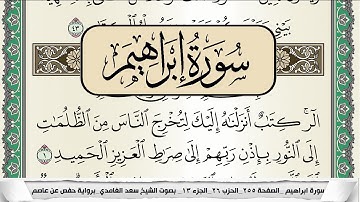 بَيْنِي
٤٣
سُورَةُ إِبْرَاهِيم
الٓر ۚ كِتَٰبٌ أَنزَلْنَٰهُ إِلَيْكَ لِتُخْرِجَ ٱلنَّاسَ مِنَ ٱلظُّلُمَٰتِ
إِلَى ٱلنُّورِ بِإِذْنِ رَبِّهِمْ إِلَىٰ صِرَٰطِ ٱلْعَزِيزِ ٱلْحَمِيدِ ١
سورة ابراهيم . الصفحة ٢٥٥ . الحزب ٢٦ . الجزء ١٣ . بصوت الشيخ سعد الغامدي . برواية حفص عن عاصم